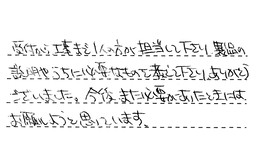 受付から工事まで1人の方が担当して下さり、製品の
説明やうちに必要なものを教えて下さり、ありがとうご
ざいました。今後、また必要があったときには
お願いしようと思っています。